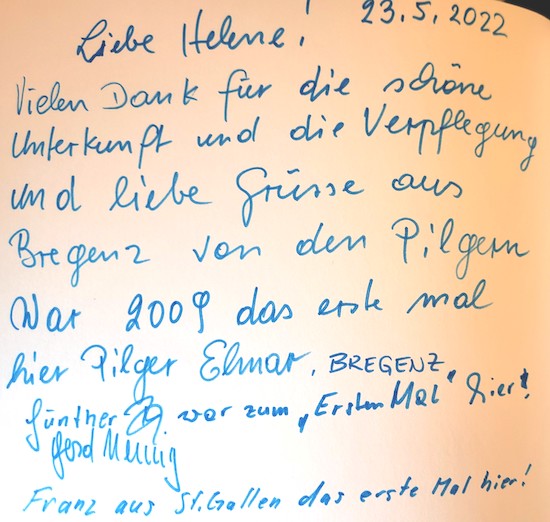 23.5.2022
Liebe Helene!
Vielen Dank für die schöne
Unterkunft und die Verpflegung
und liebe Grüsse aus
Bregenz von den Pilgern
War 2009 das erste mal
hier Pilger Elmar, BREGENZ
Günther war zum „Ersten Mal" hier!
Gerd
Franz aus St. Gallen das erste Mal hier!